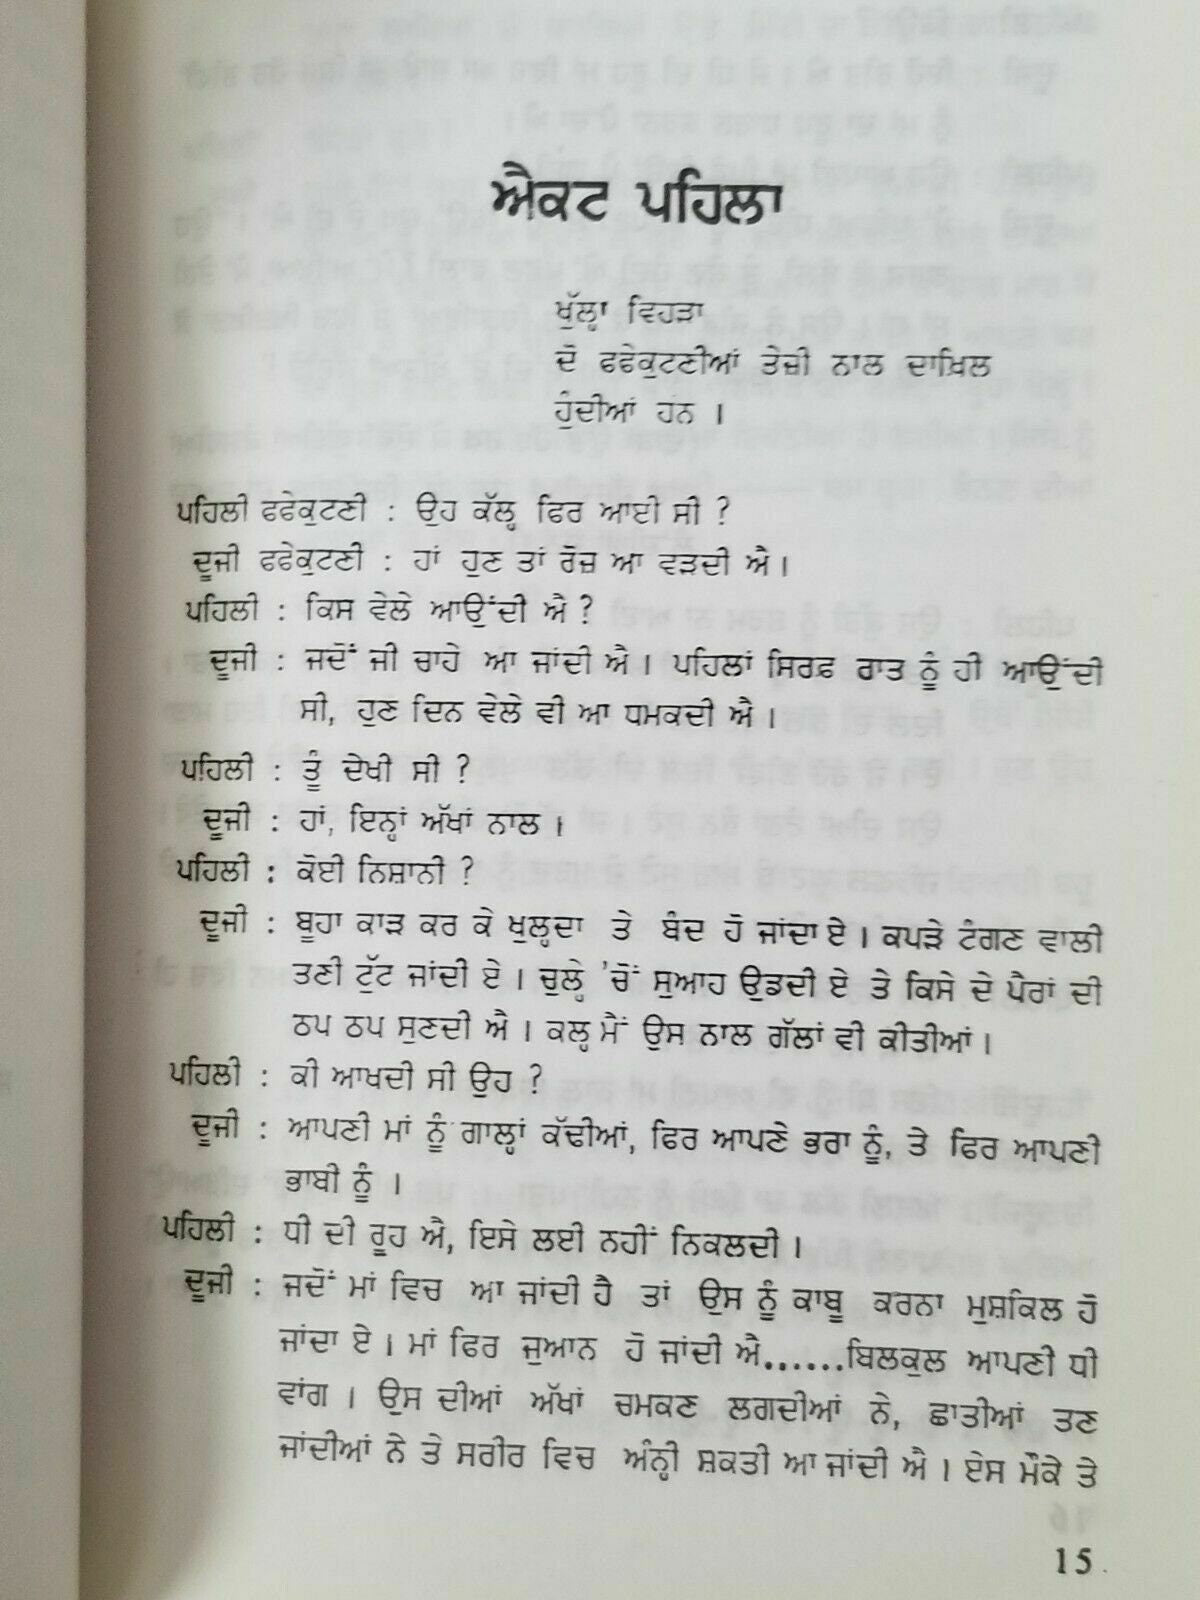 ਐਕਟ ਪਹਿਲਾ
ਖੁੱਲ੍ਹਾ ਵਿਹੜਾ
ਦੋ ਫਫੇਕੁਟਣੀਆਂ ਤੇਜ਼ੀ ਨਾਲ ਦਾਖ਼ਿਲ
ਹੁੰਦੀਆਂ ਹਨ ।
ਪਹਿਲੀ ਫਫੇਕੁਟਣੀ : ਉਹ ਕੱਲ੍ਹ ਫਿਰ ਆਈ ਸੀ ?
ਦੂਜੀ ਫਫੇਕੁਟਣੀ : ਹਾਂ ਹੁਣ ਤਾਂ ਰੋਜ਼ ਆ ਵੜਦੀ ਐ ।
ਪਹਿਲੀ : ਕਿਸ ਵੇਲੇ ਆਉਂਦੀ ਐ ?
ਦੂਜੀ : ਜਦੋਂ ਜੀ ਚਾਹੇ ਆ ਜਾਂਦੀ ਐ । ਪਹਿਲਾਂ ਸਿਰਫ਼ ਰਾਤ ਨੂੰ ਹੀ ਆਉਂਦੀ
ਸੀ, ਹੁਣ ਦਿਨ ਵੇਲੇ ਵੀ ਆ ਧਮਕਦੀ ਐ ।
ਪਹਿਲੀ : ਤੂੰ ਦੇਖੀ ਸੀ ?
ਦੂਜੀ : ਹਾਂ, ਇਨ੍ਹਾਂ ਅੱਖਾਂ ਨਾਲ ।
ਪਹਿਲੀ : ਕੋਈ ਨਿਸ਼ਾਨੀ ?
ਦੂਜੀ : ਬੂਹਾ ਕਾੜ ਕਰ ਕੇ ਖੁਲ੍ਹਦਾ ਤੇ ਬੰਦ ਹੋ ਜਾਂਦਾ ਏ । ਕਪੜੇ ਟੰਗਣ ਵਾਲੀ
ਤਣੀ ਟੁੱਟ ਜਾਂਦੀ ਏ । ਚੁਲ੍ਹੇ 'ਚੋਂ ਸੁਆਹ ਉਡਦੀ ਏ ਤੇ ਕਿਸੇ ਦੇ ਪੈਰਾਂ ਦੀ
ਠਪ ਠਪ ਸੁਣਦੀ ਐ । ਕਲ੍ਹ ਮੈਂ ਉਸ ਨਾਲ ਗੱਲਾਂ ਵੀ ਕੀਤੀਆਂ ।
ਪਹਿਲੀ : ਕੀ ਆਖਦੀ ਸੀ ਉਹ ?
ਦੂਜੀ : ਆਪਣੀ ਮਾਂ ਨੂੰ ਗਾਲ੍ਹਾਂ ਕੱਢੀਆਂ, ਫਿਰ ਆਪਣੇ ਭਰਾ ਨੂੰ, ਤੇ ਫਿਰ ਆਪਣੀ
ਭਾਬੀ ਨੂੰ ।
ਪਹਿਲੀ : ਧੀ ਦੀ ਰੂਹ ਐ, ਇਸੇ ਲਈ ਨਹੀਂ ਨਿਕਲਦੀ ।
ਦੂਜੀ : ਜਦੋਂ ਮਾਂ ਵਿਚ ਆ ਜਾਂਦੀ ਹੈ ਤਾਂ ਉਸ ਨੂੰ ਕਾਬੂ ਕਰਨਾ ਮੁਸ਼ਕਿਲ ਹੋ
ਜਾਂਦਾ ਏ । ਮਾਂ ਫਿਰ ਜੁਆਨ ਹੋ ਜਾਂਦੀ ਐ......ਬਿਲਕੁਲ ਆਪਣੀ ਧੀ
ਵਾਂਗ । ਉਸ ਦੀਆਂ ਅੱਖਾਂ ਚਮਕਣ ਲਗਦੀਆਂ ਨੇ, ਛਾਤੀਆਂ ਤਣ
ਜਾਂਦੀਆਂ ਨੇ ਤੇ ਸਰੀਰ ਵਿਚ ਅੰਨ੍ਹੀ ਸ਼ਕਤੀ ਆ ਜਾਂਦੀ ਐ । ਏਸ ਮੌਕੇ ਤੇ
15